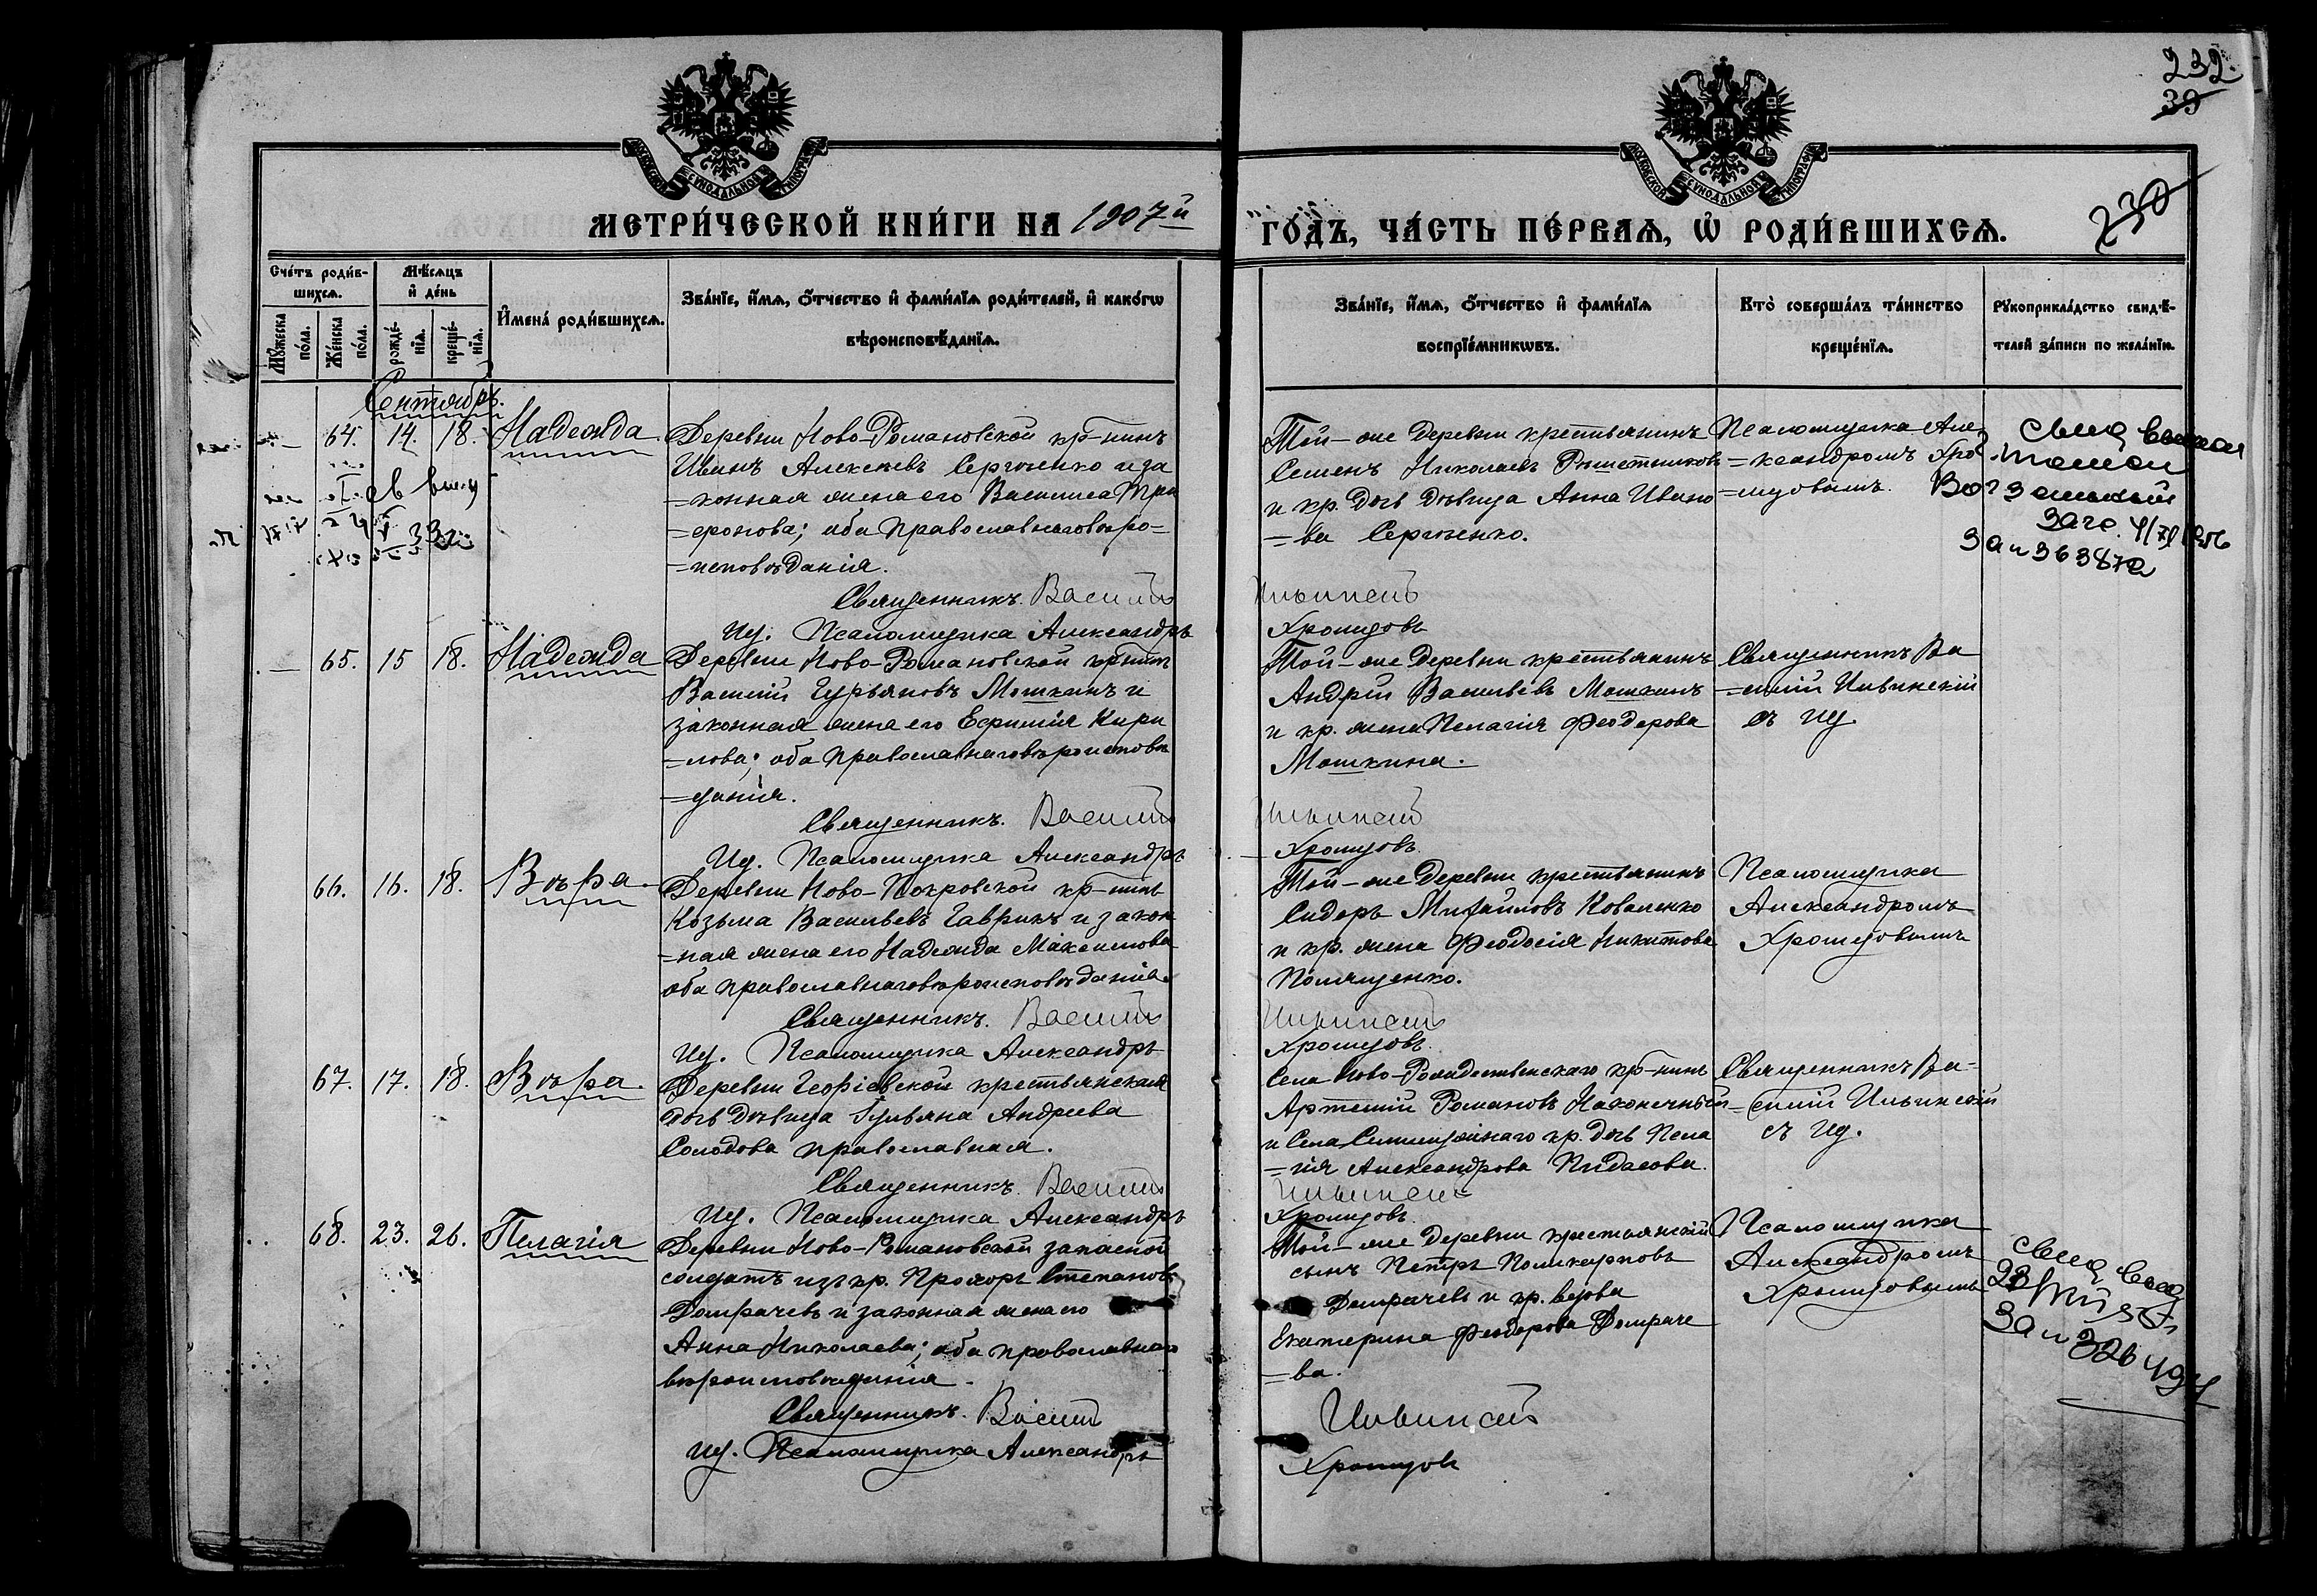 232.
39
230
МОСКОВСКОЙ СѴНОДАЛЬНОЙ ТИПОГРАФІИ
МОСКОВСКОЙ СѴНОДАЛЬНОЙ ТИПОГРАФІИ
МЕТРИ́ЧЕСКОЙ КНИ́ГИ НА 1907й
ГО́ДЪ, ЧА́СТЬ ПЕ́РВАѦ, Ѡ РОДИ́ВШИХСѦ.
Сче́тъ роди́в-
шихсѧ.
Мѣ́сѧцъ
и҆ де́нь
Мꙋ́жеска
по́ла.
Же́нска
по́ла.
рожде́-
нїѧ.
креще́-
нїѧ.
И҆мена̀ роди́вшихсѧ.
Зва́нїе, и҆́мѧ, ѻ҆́тчество и҆ фами́лїѧ роди́телей, и҆ како́гѡ
вѣроисповѣ́данїѧ.
Зва́нїе, и҆́мѧ, ѻ҆́тчество и҆ фами́лїѧ
воспрїе́мникѡвъ.
Кто̀ соверша́лъ та́инство
креще́нїѧ.
Рꙋкоприкла́дство свидѣ́-
телей за́писи по жела́нїю.
Сентябрь.
64. 14. 18. Надежда
Деревни Ново-Романовской кр-нинъ
Иванъ Алексѣевъ Сергіенко и за
=конная жена его Василиса Три
=фонова; оба православнаго вѣро=
=исповѣданія.
Священникъ Василій
Ид. Псаломщика Александръ
Той-же деревни крестьянинъ
Семенъ Николаевъ Рѣшетниковъ
и кр. дочь дѣвица Анна Ивано
=ва Сергіенко.
Ильинскій
Хромцовъ
Псаломщика Але
=ксандромъ Хро
=мцовымъ.
65. 15 18. Надежда
Деревни Ново-Романовской кр-нинъ
Василій Гурьяновъ Мошкинъ и
законная жена его Евфимія Кири
=лова; оба православнаго вѣроисповѣ
=данія.
Священникъ. Василій
Ид. Псаломщика Александръ
Той-же деревни крестьянинъ
Андрей Васильевъ Мошкинъ
и кр. жена Пелагія Феодорова
Мошкина.
Ильинскій
Хромцовъ.
Священникъ Ва
=силій Ильинскій
съ ид.
66. 16. 18. Вѣра.
Деревни Ново-Покровской кр-нинъ
Козьма Васильевъ Гавринъ и закон
=ная жена его Надежда Максимова
оба православнаго вѣроисповѣданія.
Священникъ. Василій
Ид. Псаломщика Александръ
Той-же деревни крестьянинъ
Сидоръ Михайловъ Коваленко
и кр. жена Феодосія Никитова
Ильинскій
Хромцовъ.
Псаломщика
Александромъ
Хромцовымъ
67. 17. 18. Вѣра.
Деревни Георгіевской крестьянская
дочь дѣвица Іуліана Андреева
Солодова православная.
Священникъ. Василій
Ид. Псаломщика Александръ
Села Ново-Рождественскаго кр-нинъ
Артемій Романовъ Наконечный
гія Александрова
Ильинскій
Хромцовъ.
Священникъ Ва-
=силій Ильинскій
съ ид.
68. 23. 26. Пелагія
Деревни Ново-Романовской запасной
солдатъ изъ кр. Прохоръ Степановъ
Домрачевъ и законная жена его
Анна Николаева; оба православнаго
вѣроисповѣданія.
Священникъ. Василій
Ид. Псаломщика Александръ
Той-же деревни крестьянскій
сынъ Петръ Поликарповъ
Домрачевъ и кр. вдова
Екатерина Феодорова Домраче
=ва.
Ильинскій
Хромцовъ
Псаломщика
Александромъ
Хромцовымъ